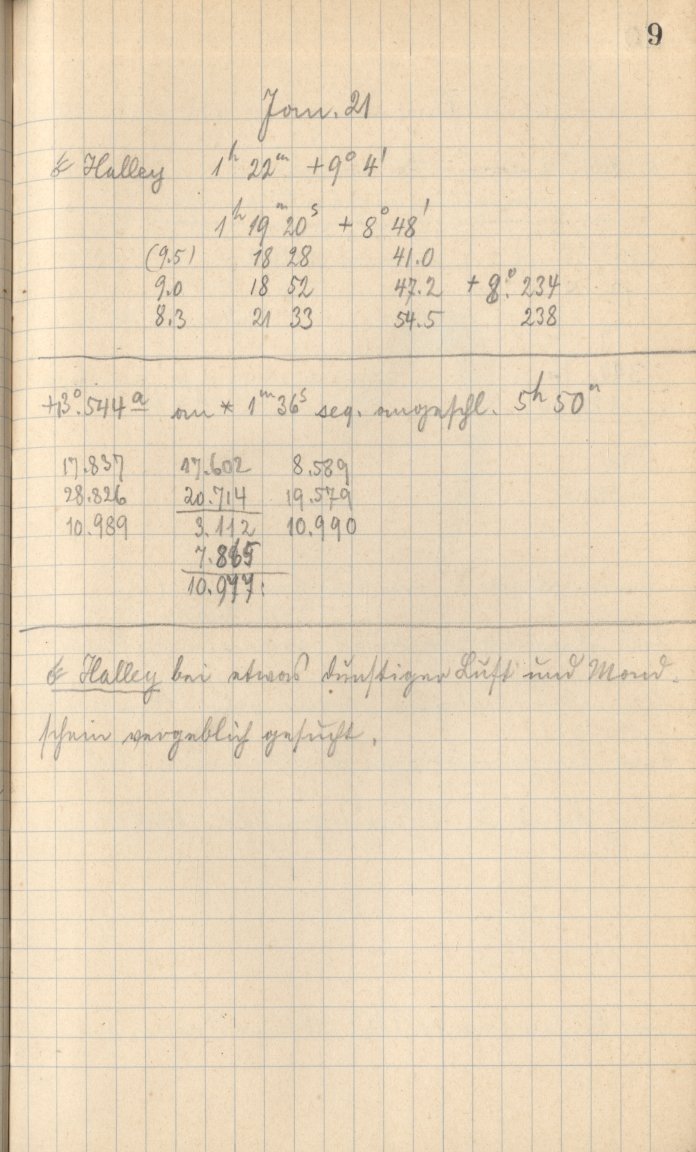 9
Jan. 21
☄ Halley 1ʰ 22ᵐ +9° 4'
1ʰ 19ᵐ 20ˢ + 8° 48'
(9.5) 18 28 41.0
9.0 18 52 47.2 + 8°. 234
8.3 21 33 54.5 238
+13°.544 a an * 1ᵐ 36ˢ seq. angeschl. 5ʰ 50ᵐ
17.837 17.602 8.589
28.826 20.714 19.579
10.989 3.112 10.990
7.865
10.977:
☄ Halley bei etwas dunstiger Luft und Mond-
schein vergeblich gesucht.